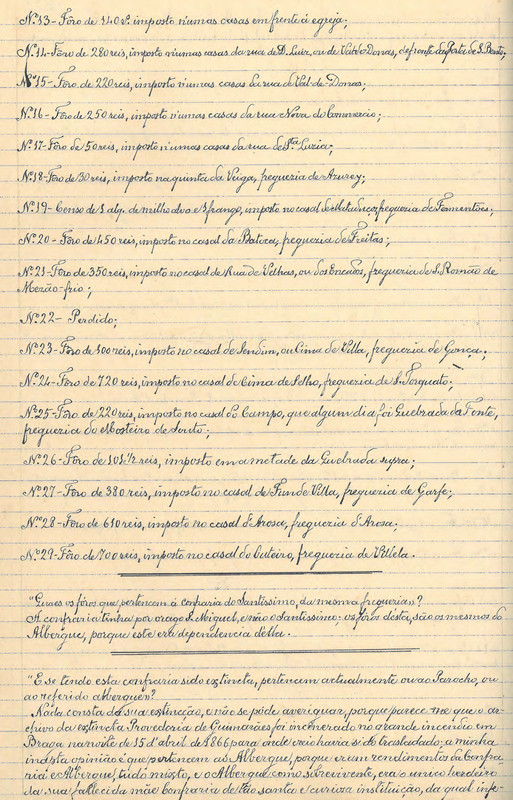 Nº 13 - Foro de 140 rs. imposto n'umas casas em frente á egreja;
Nº 14 - Foro de 280 reis, imposto n'umas casas da rua de D. Luiz, ou de Val-de-Donas, defronte da Porta de S. Bento;
Nº 15 - Foro de 220 reis, imposto n'umas casas da rua de Val-de-Donas;
Nº 16 - Foro de 250 reis, imposto n'umas casas da rua Nova do Commercio;
Nº 17 - Foro de 50 reis, imposto n'umas casas da rua de Sta Luzia;
Nº 18 - Foro de 30 reis, imposto na quinta da Veiga, fregueria de Azurey;
Nº 19 - Censo de 1 alq. de milho alvo e 1 frango, imposto no casal de fregueria de Fermentões;
Nº 20 - Foro de 450 reis, imposto no casal da Batoca, fregueria de Freitas;
Nº 21 - Foro de 350 reis, imposto no casal de Rua de Velhas, ou dos fregueria de S. Romão de
Mezão-frio;
Nº 22 - Perdido;
Nº 23 - Foro de 300 reis, imposto no casal de Sendim, ou Cima de Villa, fregueria de Gonça;
Nº 24 - Foro de 720 reis, imposto no casal de Cima de Selho, fregueria de S. Torquato;
Nº 25 - Foro de 220 reis, imposto no casal do Campo, que algum dia foi Quebrada da Fonte,
fregueria do Mosteiro de Souto;
Nº 26 - Foro de 101 1/2 reis, imposto em a metade da Quebrada supra;
Nº 27 - Foro de 380 reis, imposto no casal de Fundevilla, fregueria de Garfe;
Nº 28 - Foro de 610 reis, imposto no casal d'Arosa, fregueria d'Arosa;
Nº 29 - Foro de 700 reis, imposto no casal do Outeiro, fregueria de Villela.
"Quaes os fóros que pertencem á confraria do Santissimo, da mesma fregueria»?
A confraria tinha por orago S. Miguel, e não o Santissimo; os fóros désta, são os mesmos do
Albergue, porque este era dependencia d'ella.
"E se tendo esta confraria sido extincta, pertencem actualmente ou ao Parocho, ou
ao referido albergue»?
Nada consta da sua extincção, e não se póde averiguar, porque parece-me que o ar-
chivo da extincta Provedoria de Guimarães foi incinerado no grande incendio em
Braga na noite de 15 d'abril de 1866 para onde havia sido trasladado; a minha
opinião é que pertencem ao Albergue, porque eram rendimentos da Confra-
ria e Albergue, tudo mixto, e o Albergue como sobrevivente, era o unico herdeiro
da sua fallecida mãe Confraria de tão santa e curioza instituição, da qual infe-